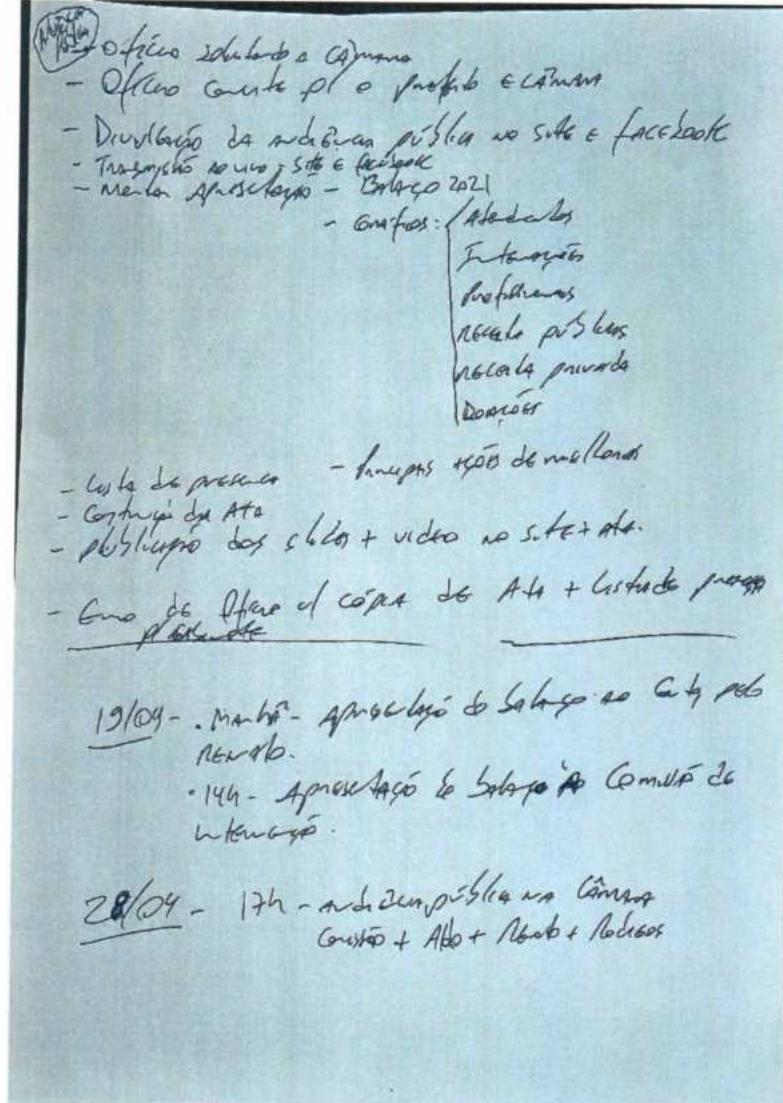 Audiência Pública
- Ofício solicitando a Câmara
- Ofício convite p/ o prefeito e Câmara
- Divulgação da audiência pública no site e facebook
- Transmissão ao vivo - site e facebook
- Montar Apresentação - Balanço 2021
- Gráficos: Atendimentos
Internações
Profissionais
Receita públicas
Receita privada
Doações
- Principais ações de melhorias
- Lista de presença
- Construção da Ata
- Publicação dos slides + vídeo no site + ata.
- Envio de Ofício c/ cópia de Ata + Lista de presença
19/04 - . Manhã - Apresentação do balanço ao pelo
Renato.
. 14h - Apresentação do balanço a Comissão de
intervenção.
28/04 - 17h - audiência pública na Câmara
Comissão + Aldo + Renato + Rodrigo